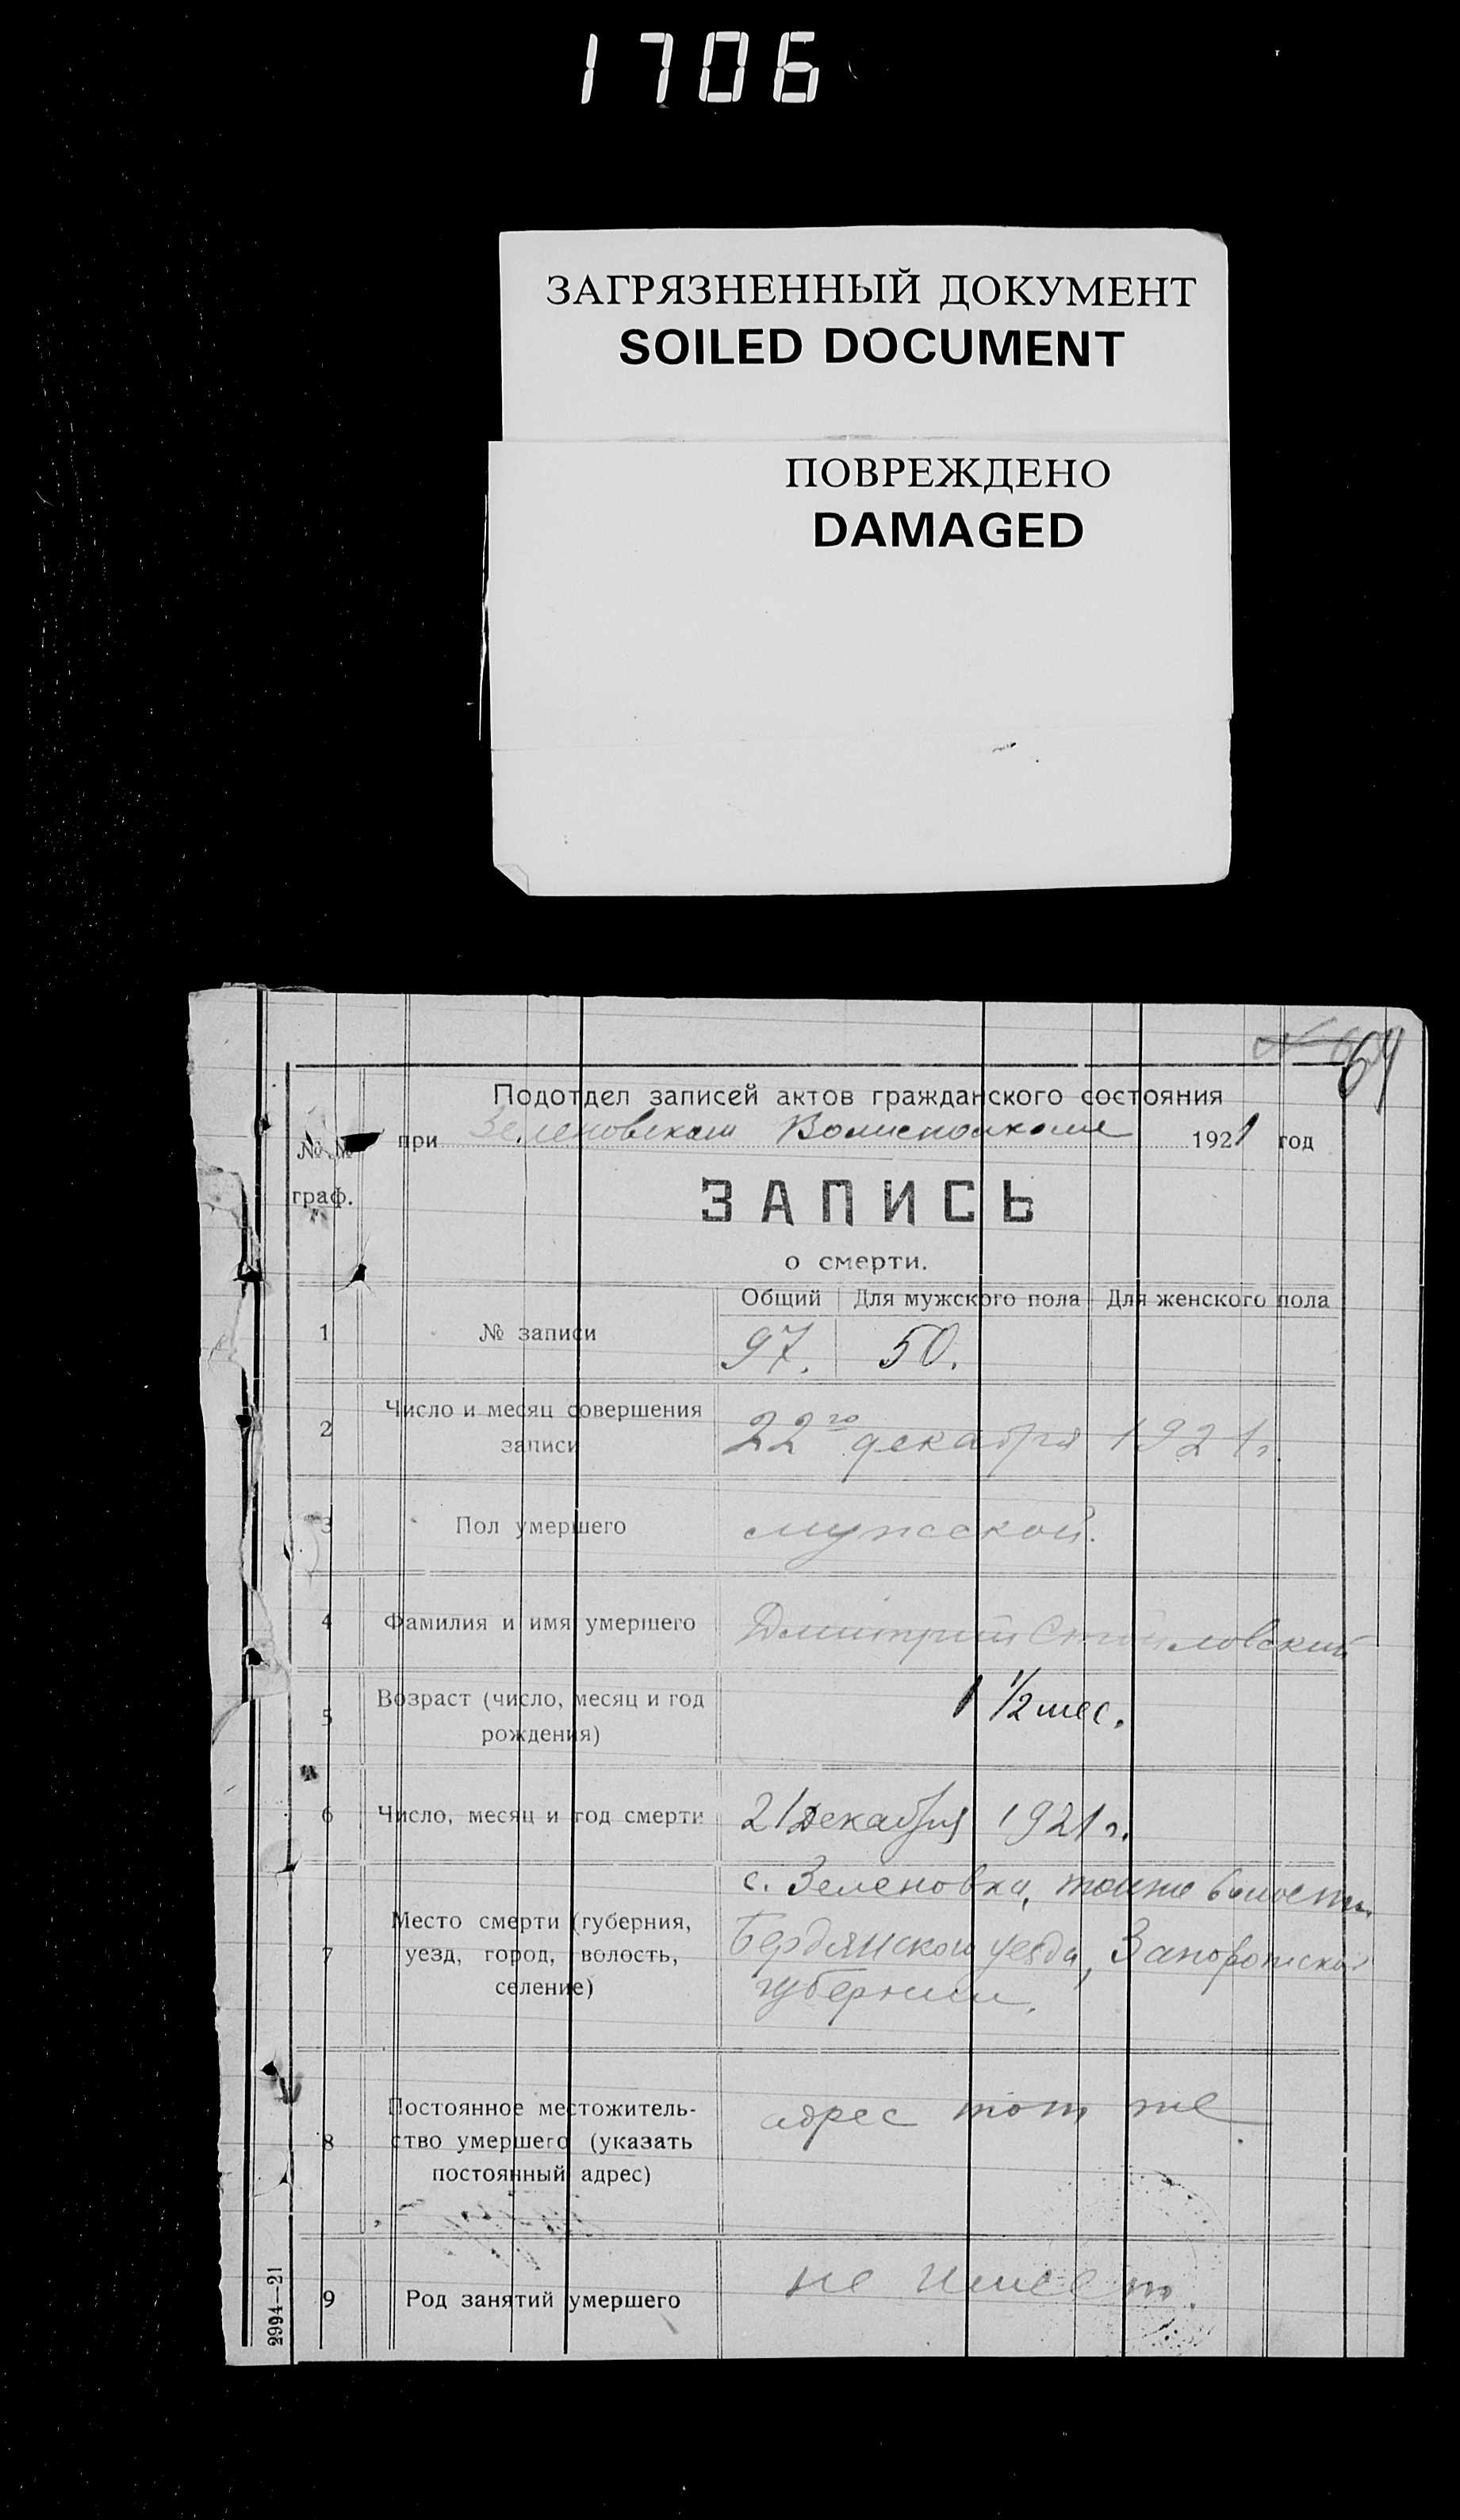 1706
ЗАГРЯЗНЕННЫЙ ДОКУМЕНТ
SOILED DOCUMENT
ПОВРЕЖДЕНО
DAMAGED
69
Подотдел записей актов гражданского состояния
№№ граф.
при Зеленовском Волисполкоме 1921 год
ЗАПИСЬ
о смерти.
Общий Для мужского пола Для женского пола
1 № записи 97. 50.
2 Число и месяц совершения
записи
22го декабря 1921 г.
3 Пол умершего мужской.
4 Фамилия и имя умершего Дмитрий
5 Возраст (число, месяц и год
рождения)
1 1/2 мес.
6 Число, месяц и год смерти 21 Декабря 1921 г.
7 Место смерти (губерния,
уезд, город, волость,
селение)
с. Зеленовка, тойже волости
Бердянского уезда, Запорожской
губернии.
8 Постоянное местожитель-
ство умершего (указать
постоянный адрес)
адрес тот же
9 Род занятий умершего не имеет.
2994—21